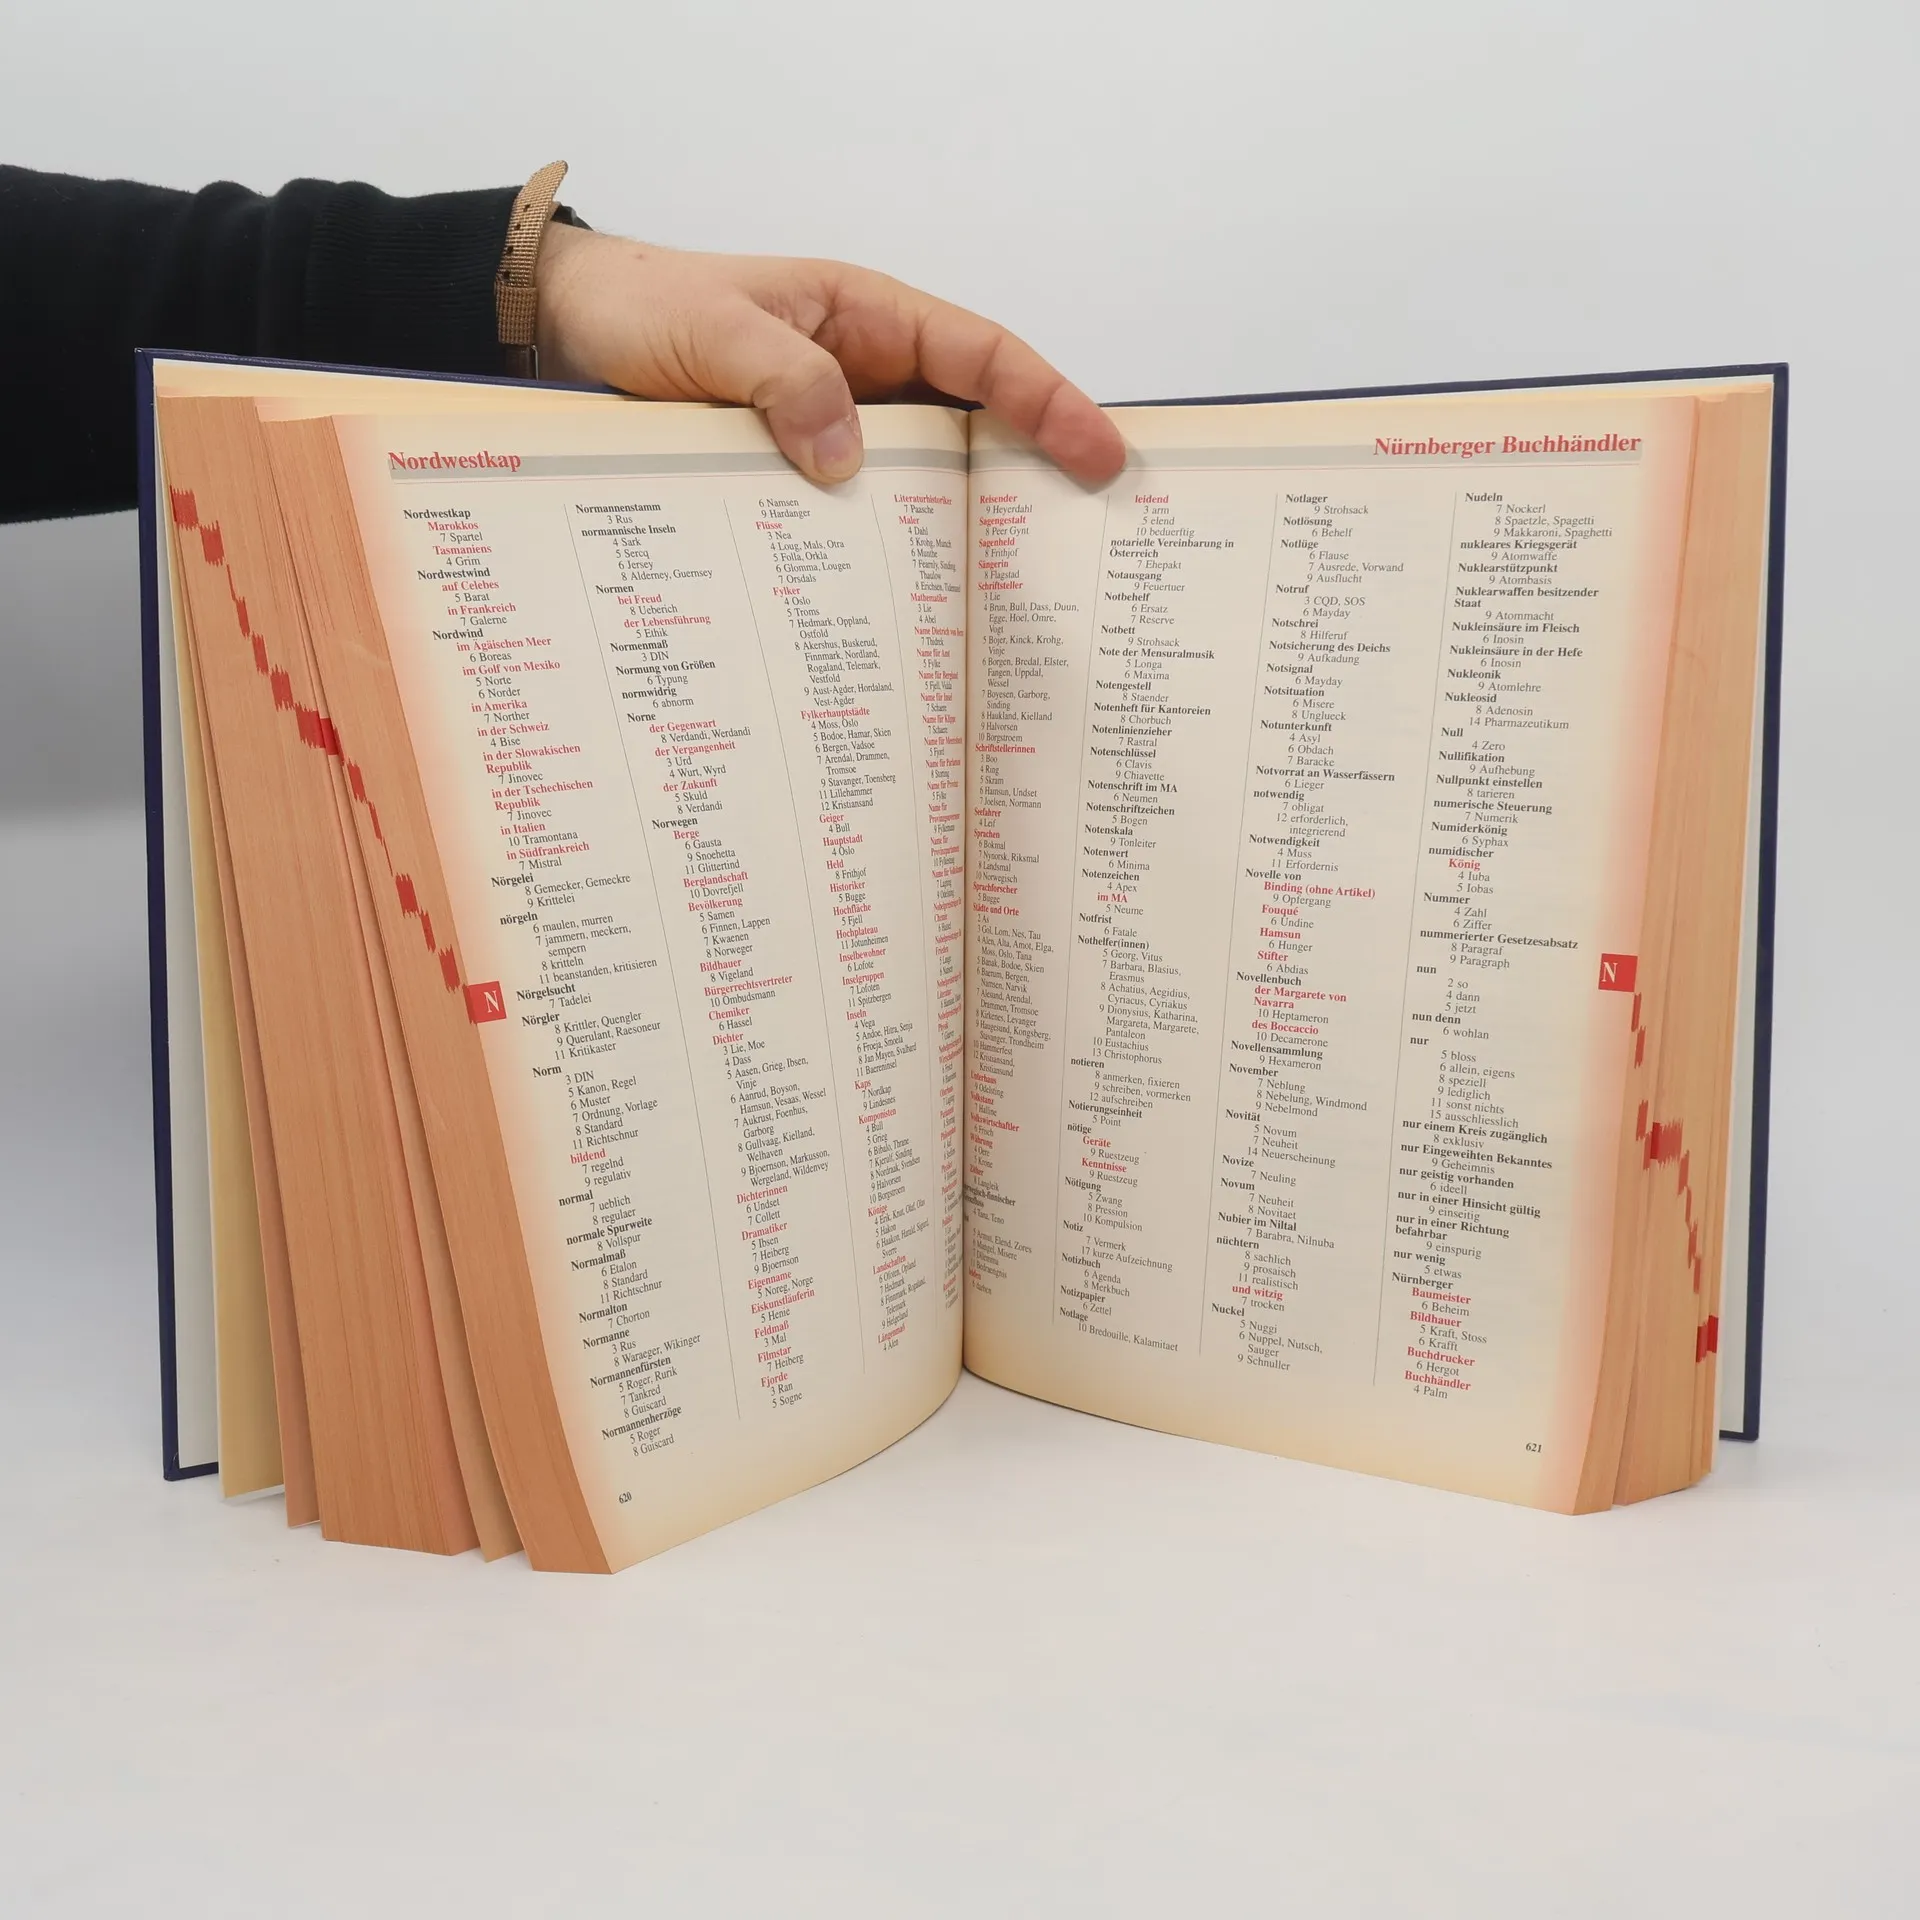 Nordwestkap
Nordwestkap
Marokkos
7 Spartel
Tasmaniens
4 Grim
Nordwestwind
auf Celebes
5 Barat
in Frankreich
7 Galerne
Nordwind
im Ägäischen Meer
6 Boreas
im Golf von Mexiko
5 Norte
6 Norder
in Amerika
7 Norther
in der Schweiz
4 Bise
in der Slowakischen
Republik
7 Jinovec
in der Tschechischen
Republik
7 Jinovec
in Italien
10 Tramontana
in Südfrankreich
7 Mistral
Nörgelei
8 Gemecker, Gemeckre
9 Krittelei
nörgeln
6 maulen, murren
7 jammern, meckern,
sempern
8 kritteln
11 beanstanden, kritisieren
Nörgelsucht
7 Tadelei
Nörgler
8 Krittler, Quengler
9 Querulant, Raesoneur
11 Kritikaster
Norm
3 DIN
5 Kanon, Regel
6 Muster
7 Ordnung, Vorlage
8 Standard
11 Richtschnur
bildend
7 regelnd
9 regulativ
normal
7 ueblich
8 regulaer
normale Spurweite
8 Vollspur
Normalmaß
6 Etalon
8 Standard
11 Richtschnur
Normalton
7 Chorton
Normanne
3 Rus
8 Waraeger, Wikinger
Normannenfürsten
5 Roger, Rurik
7 Tankred
8 Guiscard
Normannenherzöge
5 Roger
8 Guiscard
Normannenstamm
3 Rus
normannische Inseln
4 Sark
5 Sercq
6 Jersey
8 Alderney, Guernsey
Normen
bei Freud
8 Ueberich
der Lebensführung
5 Ethik
Normenmaß
3 DIN
Normung von Größen
6 Typung
normwidrig
6 abnorm
Norne
der Gegenwart
8 Verdandi, Werdandi
der Vergangenheit
3 Urd
4 Wurt, Wyrd
der Zukunft
5 Skuld
8 Verdandi
Norwegen
Berge
6 Gausta
9 Snoehetta
11 Glittertind
Berglandschaft
10 Dovrefjell
Bevölkerung
5 Samen
6 Finnen, Lappen
7 Kwaenen
8 Norweger
Bildhauer
8 Vigeland
Bürgerrechtsvertreter
10 Ombudsmann
Chemiker
6 Hassel
Dichter
3 Lie, Moe
4 Dass
5 Aasen, Grieg, Ibsen,
Vinje
6 Aanrud, Boyson,
Hamsun, Vesaas, Wessel
7 Aukrust, Foenhus,
Garborg
8 Gullvaag, Kielland,
Welhaven
9 Bjoernson, Markusson,
Wergeland, Wildenvey
Dichterinnen
6 Undset
7 Collett
Dramatiker
5 Ibsen
7 Heiberg
9 Bjoernson
Eigenname
5 Noreg, Norge
Eiskunstläuferin
5 Henie
Feldmaß
3 Mal
Filmstar
7 Heiberg
Fjorde
3 Ran
5 Sogne
6 Namsen
9 Hardanger
Flüsse
3 Nea
4 Loug, Mals, Otra
5 Folla, Orkla
6 Glomma, Lougen
7 Orsdals
Fylker
4 Oslo
5 Troms
7 Hedmark, Oppland,
Ostfold
8 Akershus, Buskerud,
Finnmark, Nordland,
Rogaland, Telemark,
Vestfold
9 Aust-Agder, Hordaland,
Vest-Agder
Fylkerhauptstädte
4 Moss, Oslo
5 Bodoe, Hamar, Skien
6 Bergen, Vadsoe
7 Arendal, Drammen,
Tromsoe
9 Stavanger, Toensberg
11 Lillehammer
12 Kristiansand
Geiger
4 Bull
Hauptstadt
4 Oslo
Held
8 Frithjof
Historiker
5 Bugge
Hochfläche
5 Fjell
Hochplateau
11 Jotunheimen
Inselbewohner
6 Lofote
Inselgruppen
7 Lofoten
11 Spitzbergen
Inseln
4 Vega
5 Andoe, Hitra, Senja
6 Froeja, Smoela
8 Jan Mayen, Svalbard
11 Baereninsel
Kaps
7 Nordkap
9 Lindesnes
Komponisten
4 Bull
5 Grieg
6 Bibalo, Thrane
7 Kjerulf, Sinding
8 Nordraak, Svendsen
9 Halvorsen
10 Borgstroem
Könige
4 Erik, Knut, Olaf, Olav
5 Hakon
6 Haakon, Harald, Sigurd,
Sverre
Landschaften
Telemark
9 Helgeland
Längenmaß
4 Alen
Literaturhistoriker
7 Paasche
Maler
4 Dahl
5 Krohg, Munch
6 Munthe
7 Fearnly, Sinding,
Thaulow
Mathematiker
3 Lie
4 Abel
620
N
Nürnberger Buchhändler
Reisender
9 Heyerdahl
Sagengestalt
8 Peer Gynt
Sagenheld
8 Frithjof
Sängerin
8 Flagstad
Schriftsteller
3 Lie
4 Brun, Bull, Dass, Duun,
Egge, Hoel, Omre,
Vogt
5 Bojer, Kinck, Krohg,
Vinje
6 Borgen, Bredal, Elster,
Fangen, Uppdal,
Wessel
7 Boyesen, Garborg,
Sinding
8 Haukland, Kielland
9 Halvorsen
10 Borgstroem
Schriftstellerinnen
3 Boo
4 Ring
5 Skram
6 Hamsun, Undset
7 Joelsen, Normann
Seefahrer
4 Leif
Sprachen
6 Bokmal
7 Nynorsk, Riksmal
8 Landsmal
10 Norwegisch
Sprachforscher
5 Bugge
Städte und Orte
2 As
3 Gol, Lom, Nes, Tau
4 Alen, Alta, Amot, Elga,
Moss, Oslo, Tana
5 Banak, Bodoe, Skien
6 Baerum, Bergen,
Namsen, Narvik
7 Alesund, Arendal,
Drammen, Tromsoe
8 Kirkenes, Levanger
9 Haugesund, Kongsberg,
Stavanger, Trondheim
10 Hammerfest
12 Kristiansand,
Kristiansund
Unterhaus
9 Odelsting
Volkstanz
7 Halling
Volkswirtschaftler
6 Frisch
Währung
4 Oere
5 Krone
Zither
8 Langleik
leidend
3 arm
5 elend
10 beduerftig
notarielle Vereinbarung in
Österreich
7 Ehepakt
Notausgang
9 Feuertuer
Notbehelf
6 Ersatz
7 Reserve
Notbett
9 Strohsack
Note der Mensuralmusik
5 Longa
6 Maxima
Notengestell
8 Staender
Notenheft für Kantoreien
8 Chorbuch
Notenlinienzieher
7 Rastral
Notenschlüssel
6 Clavis
9 Chiavette
Notenschrift im MA
6 Neumen
Notenschriftzeichen
5 Bogen
Notenskala
9 Tonleiter
Notenwert
6 Minima
Notenzeichen
4 Apex
im MA
5 Neume
Notfrist
6 Fatale
Nothelfer(innen)
5 Georg, Vitus
7 Barbara, Blasius,
Erasmus
8 Achatius, Aegidius,
Cyriacus, Cyriakus
9 Dionysius, Katharina,
Margareta, Margarete,
Pantaleon
10 Eustachius
13 Christophorus
notieren
8 anmerken, fixieren
9 schreiben, vormerken
12 aufschreiben
Notierungseinheit
5 Point
nötige
Geräte
9 Ruestzeug
Kenntnisse
9 Ruestzeug
Nötigung
5 Zwang
8 Pression
10 Kompulsion
Notiz
7 Vermerk
17 kurze Aufzeichnung
Notizbuch
6 Agenda
8 Merkbuch
Notizpapier
6 Zettel
Notlage
10 Bredouille, Kalamitaet
Notlager
9 Strohsack
Notlösung
6 Behelf
Notlüge
6 Flause
7 Ausrede, Vorwand
9 Ausflucht
Notruf
3 CQD, SOS
6 Mayday
Notschrei
8 Hilferuf
Notsicherung des Deichs
9 Aufkadung
Notsignal
6 Mayday
Notsituation
6 Misere
8 Unglueck
Notunterkunft
4 Asyl
6 Obdach
7 Baracke
Notvorrat an Wasserfässern
6 Lieger
notwendig
7 obligat
12 erforderlich,
integrierend
Notwendigkeit
4 Muss
11 Erfordernis
Novelle von
Binding (ohne Artikel)
9 Opfergang
Fouqué
6 Undine
Hamsun
6 Hunger
Stifter
6 Abdias
Novellenbuch
der Margarete von
Navarra
10 Heptameron
des Boccaccio
10 Decamerone
Novellensammlung
9 Hexameron
November
7 Neblung
8 Nebelung, Windmond
9 Nebelmond
Novität
5 Novum
7 Neuheit
14 Neuerscheinung
Novize
7 Neuling
Novum
7 Neuheit
8 Novitaet
Nubier im Niltal
7 Barabra, Nilnuba
nüchtern
8 sachlich
9 prosaisch
11 realistisch
und witzig
7 trocken
Nuckel
5 Nuggi
6 Nuppel, Nutsch,
Sauger
9 Schnuller
Nudeln
7 Nockerl
8 Spaetzle, Spagetti
9 Makkaroni, Spaghetti
nukleares Kriegsgerät
9 Atomwaffe
Nuklearstützpunkt
9 Atombasis
Nuklearwaffen besitzender
Staat
9 Atommacht
Nukleinsäure im Fleisch
6 Inosin
Nukleinsäure in der Hefe
6 Inosin
Nukleonik
9 Atomlehre
Nukleosid
8 Adenosin
14 Pharmazeutikum
Null
4 Zero
Nullifikation
9 Aufhebung
Nullpunkt einstellen
8 tarieren
numerische Steuerung
7 Numerik
Numiderkönig
6 Syphax
numidischer
König
4 Iuba
5 Iobas
Nummer
4 Zahl
6 Ziffer
nummerierter Gesetzesabsatz
8 Paragraf
9 Paragraph
nun
2 so
4 dann
5 jetzt
nun denn
6 wohlan
nur
5 bloss
6 allein, eigens
8 speziell
9 lediglich
11 sonst nichts
15 ausschliesslich
nur einem Kreis zugänglich
8 exklusiv
nur Eingeweihten Bekanntes
9 Geheimnis
nur geistig vorhanden
6 ideell
nur in einer Hinsicht gültig
9 einseitig
nur in einer Richtung
befahrbar
9 einspurig
nur wenig
5 etwas
Nürnberger
Baumeister
6 Beheim
Bildhauer
5 Kraft, Stoss
6 Krafft
Buchdrucker
6 Hergot
Buchhändler
4 Palm
621
N